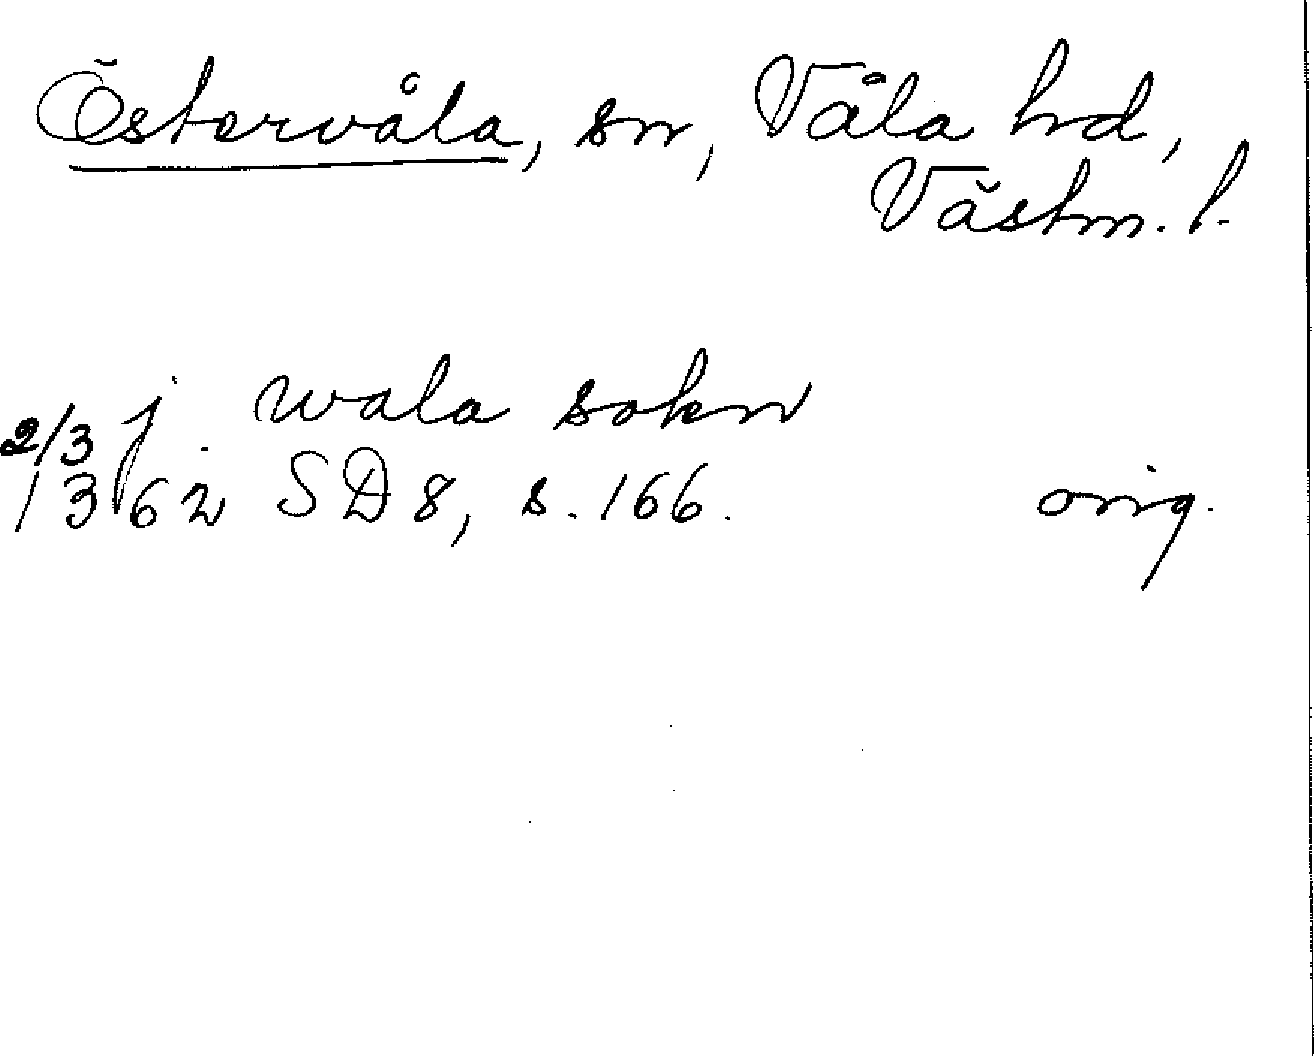 Östervåla, sn, Våla hd,
Västm. l.
j. wala sokn
2/3
1362 SD 8, s. 166. orig.